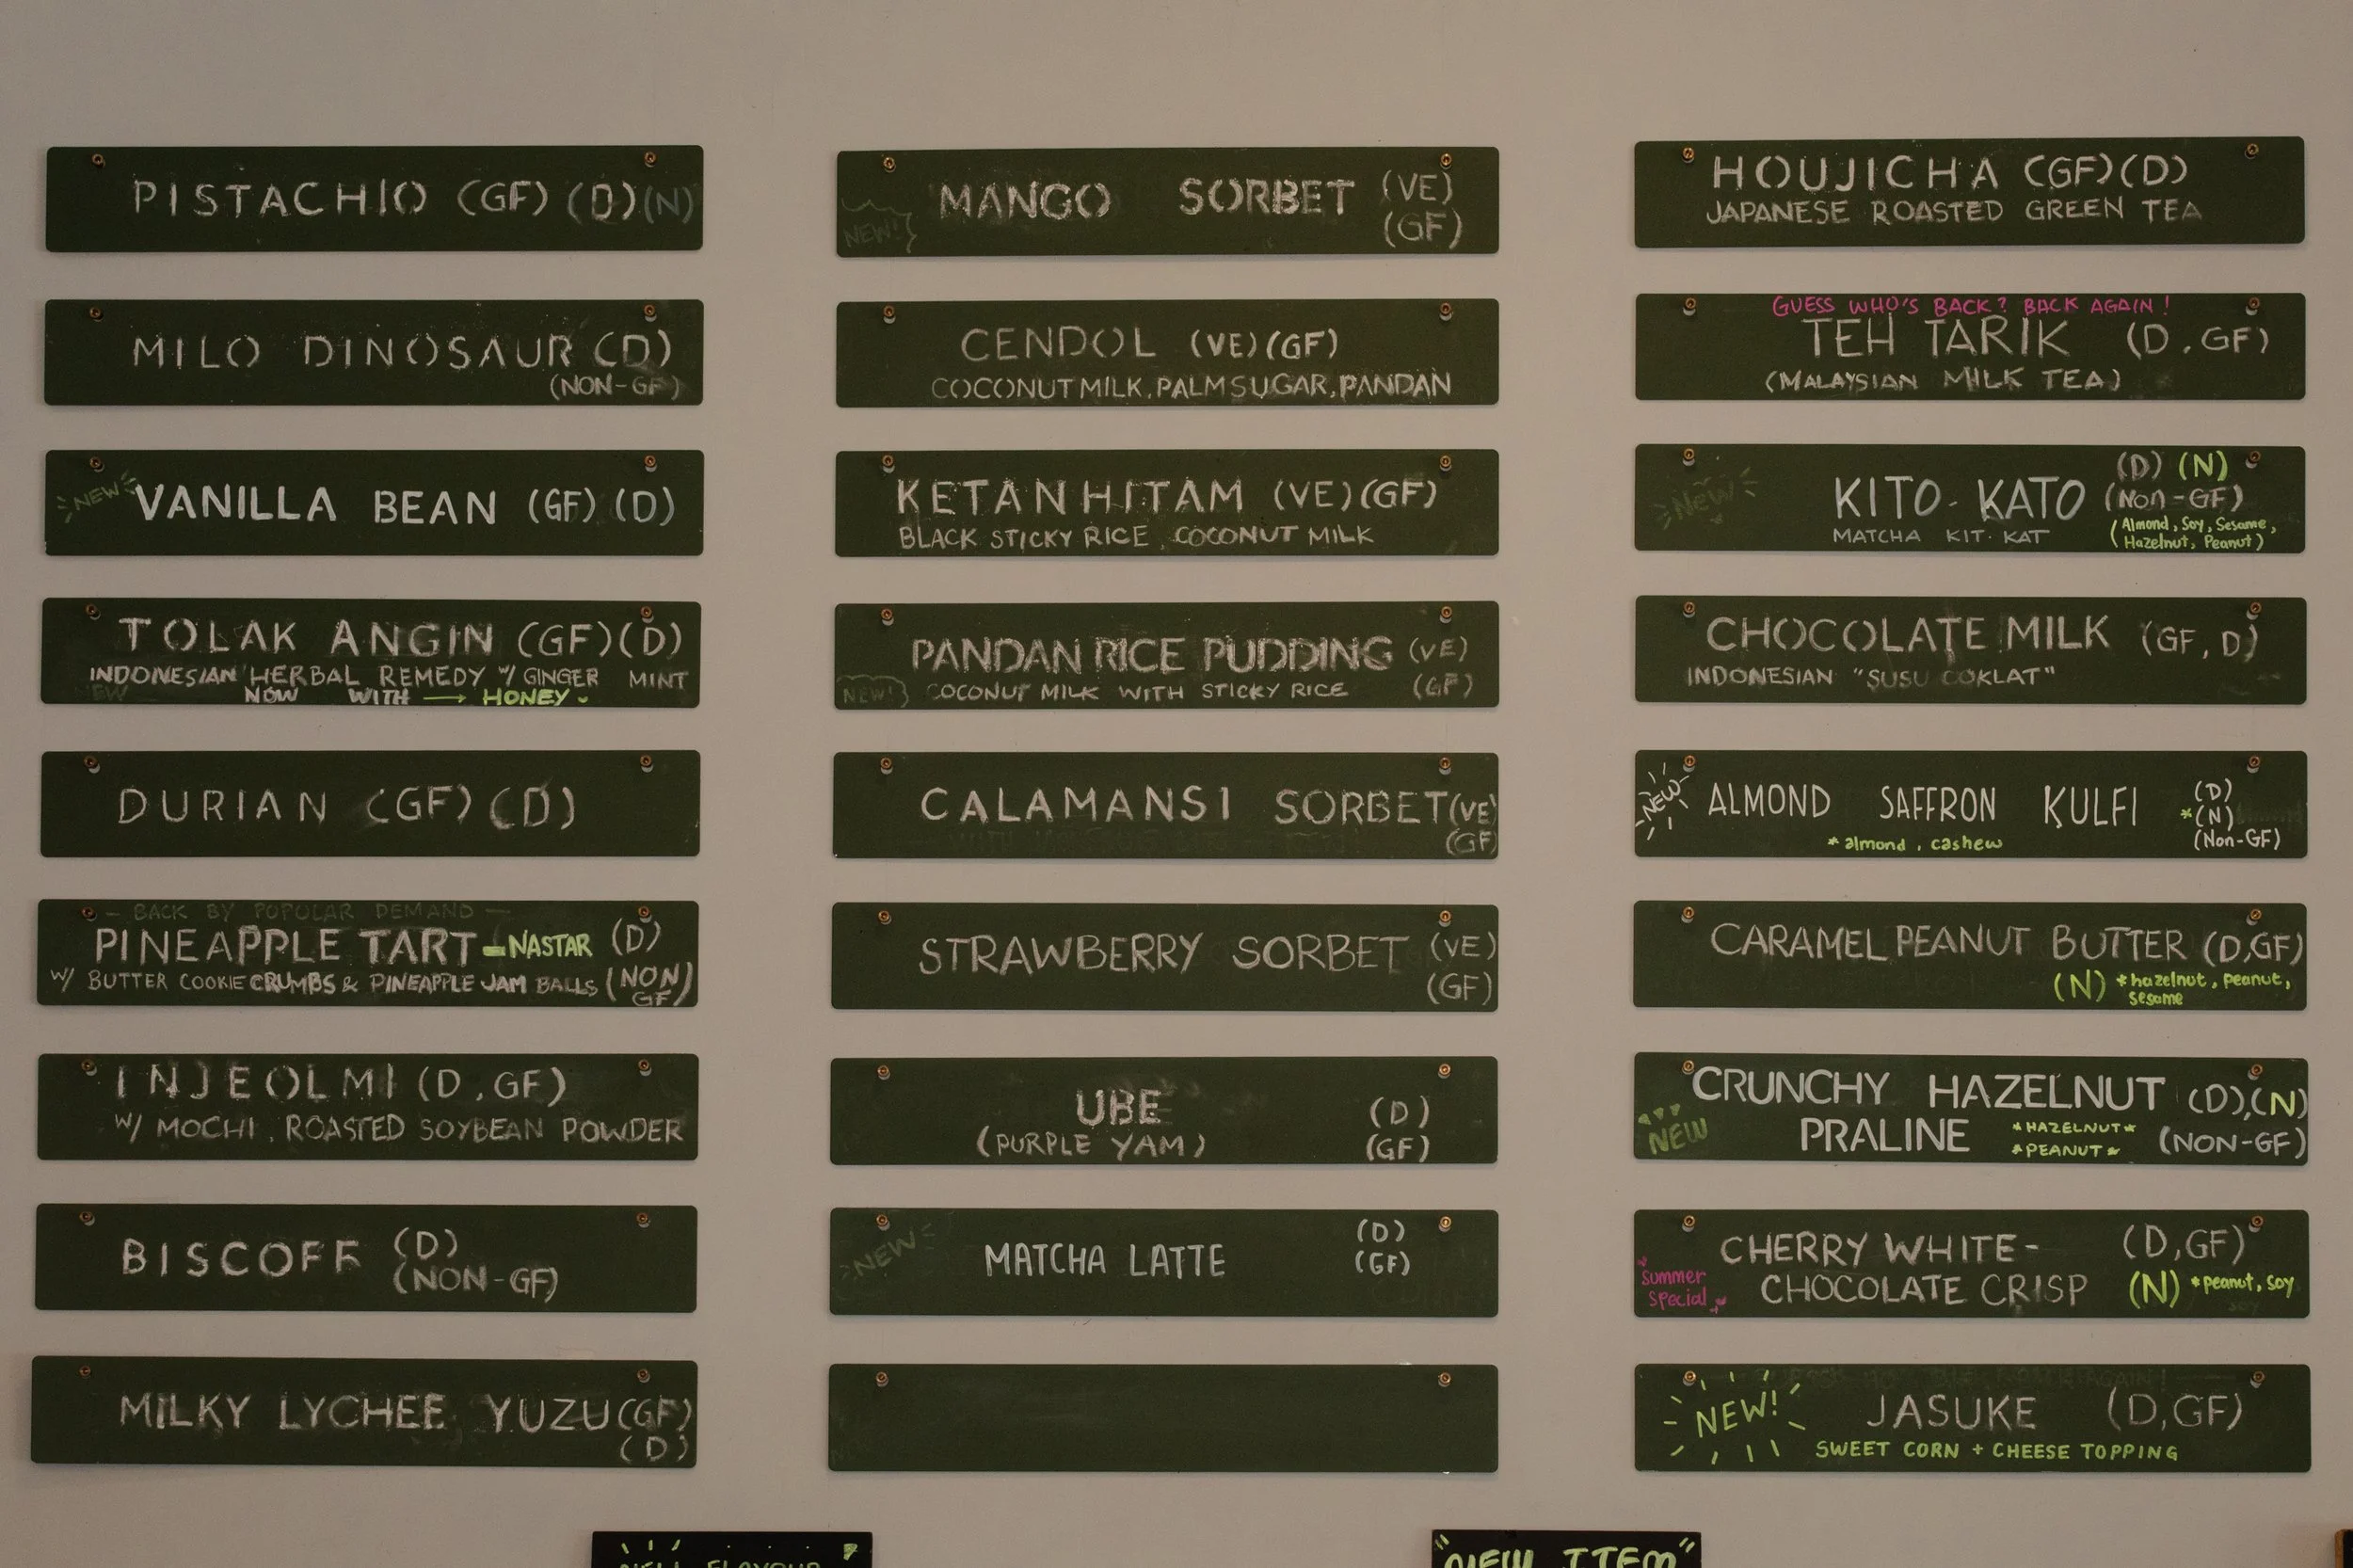 PISTACHIO (GF) (D) (N)
MILO DINOSAUR (D)
(NON-GF)
NEW
VANILLA BEAN (GF) (D)
TOLAK ANGIN (GF) (D)
INDONESIAN HERBAL REMEDY W/ GINGER MINT
NEW NOW WITH → HONEY
DURIAN (GF) (D)
— BACK BY POPULAR DEMAND —
PINEAPPLE TART - NASTAR (D)
W/ BUTTER COOKIE CRUMBS & PINEAPPLE JAM BALLS (NON GF)
INJEOLMI (D, GF)
W/ MOCHI, ROASTED SOYBEAN POWDER
BISCOFF (D)
(NON-GF)
MILKY LYCHEE YUZU (GF)
(D)
MANGO SORBET (VE)
NEW! (GF)
CENDOL (VE) (GF)
COCONUT MILK, PALM SUGAR, PANDAN
KETAN HITAM (VE) (GF)
BLACK STICKY RICE, COCONUT MILK
PANDAN RICE PUDDING (VE)
NEW! COCONUT MILK WITH STICKY RICE (GF)
CALAMANSI SORBET (VE)
(GF)
STRAWBERRY SORBET (VE)
(GF)
UBE (D)
(PURPLE YAM) (GF)
NEW
MATCHA LATTE (D)
(GF)
HOUJICHA (GF) (D)
JAPANESE ROASTED GREEN TEA
GUESS WHO'S BACK? BACK AGAIN!
TEH TARIK (D, GF)
(MALAYSIAN MILK TEA)
New
KITO-KATO (D) (N)
(Non-GF)
MATCHA KIT-KAT
(Almond, Soy, Sesame,
Hazelnut, Peanut)
CHOCOLATE MILK (GF, D)
INDONESIAN "SUSU COKLAT"
NEW
ALMOND SAFFRON KULFI (D)
*(N)
(Non-GF)
*almond, cashew
CARAMEL PEANUT BUTTER (D,GF)
(N) *hazelnut, peanut,
sesame
CRUNCHY HAZELNUT (D),(N)
NEW PRALINE (NON-GF)
*HAZELNUT*
*PEANUT*
CHERRY WHITE- (D,GF)
CHOCOLATE CRISP (N) *peanut, soy
Summer
Special
NEW!
JASUKE (D,GF)
SWEET CORN + CHEESE TOPPING
NEW FLAVOUR
"NEW ITEM"